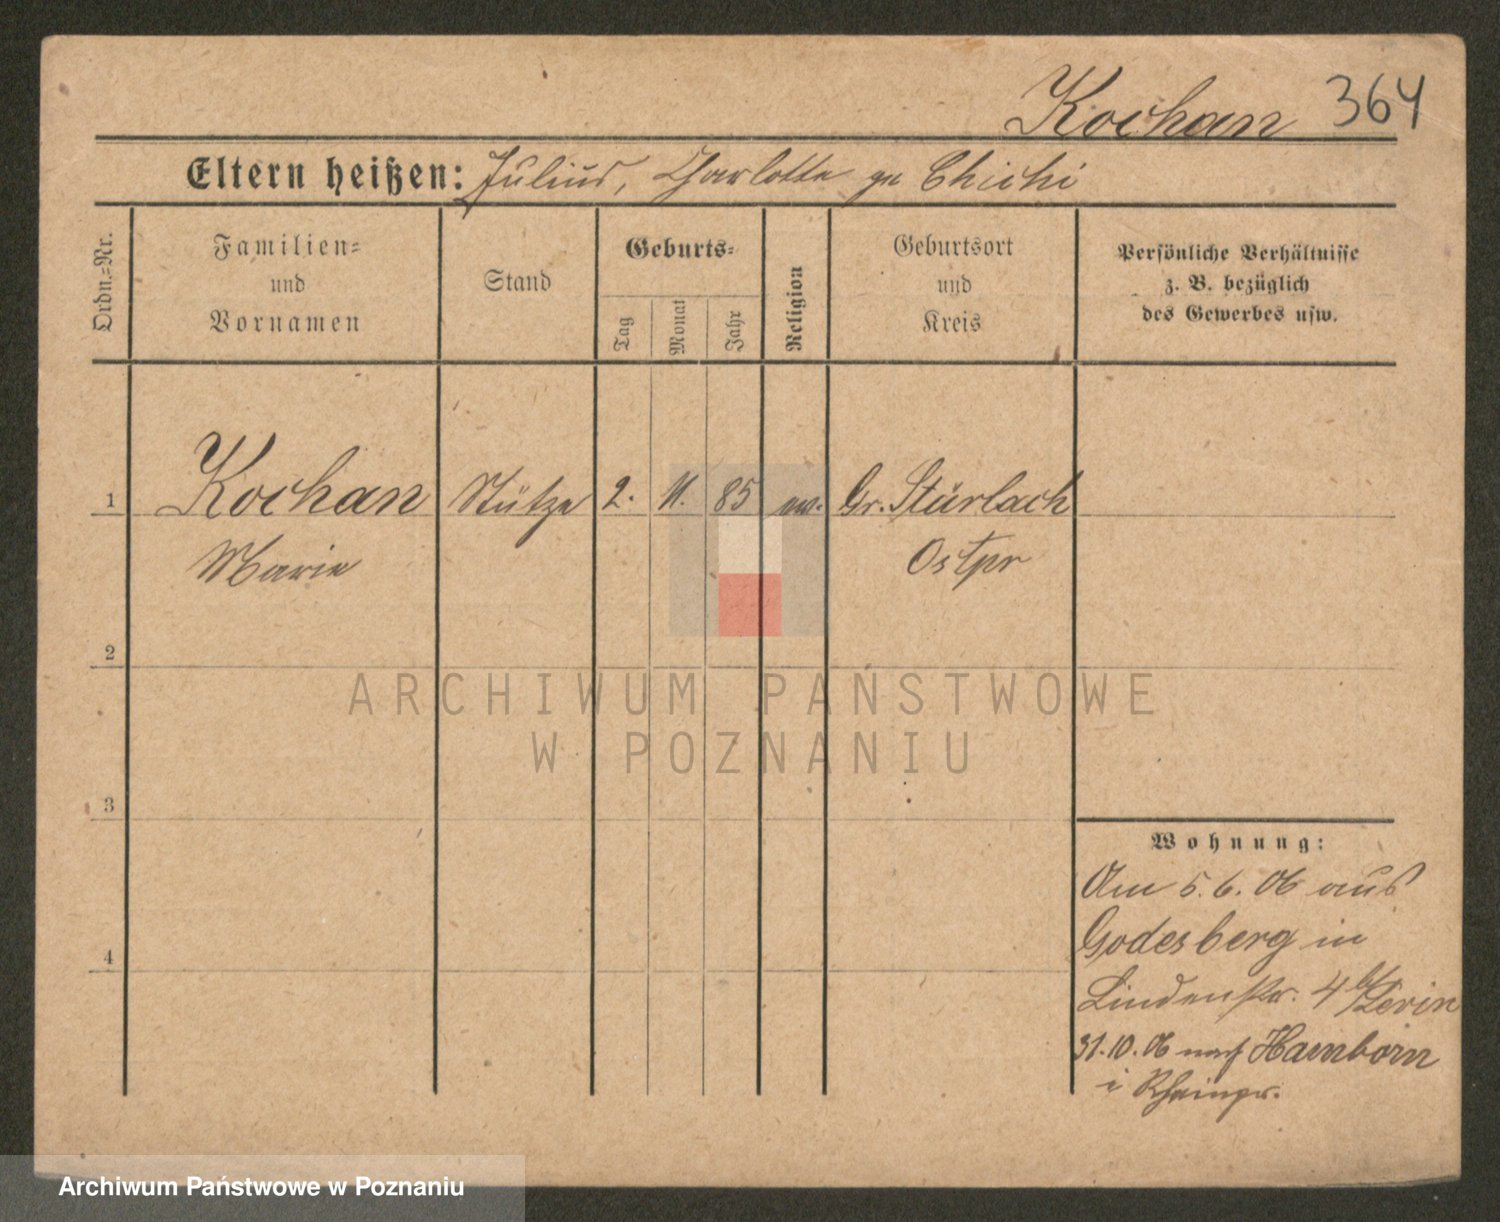 Kochan 364
Eltern heißen: Julius, Charlotte ge Chichi
Ordn.-Nr.
Familien-
und
Vornamen
Stand
Geburts-
Tag
Monat
Jahr
Religion
Geburtsort
und
Kreis
Persönliche Verhältnisse
z. B. bezüglich
des Gewerbes usw.
1 Kochan Stütze 2. 11. 85 ev. Gr. Stürlach
Marie Ostpr
2
ARCHIWUM PAŃSTWOWE
W POZNANIU
3
Wohnung:
Am 5. 6. 06 aus
Godesberg in
4
Lindenstr. 4 b/Levin
31. 10. 06 nach Hamborn
i Rheinpr.
Archiwum Państwowe w Poznaniu